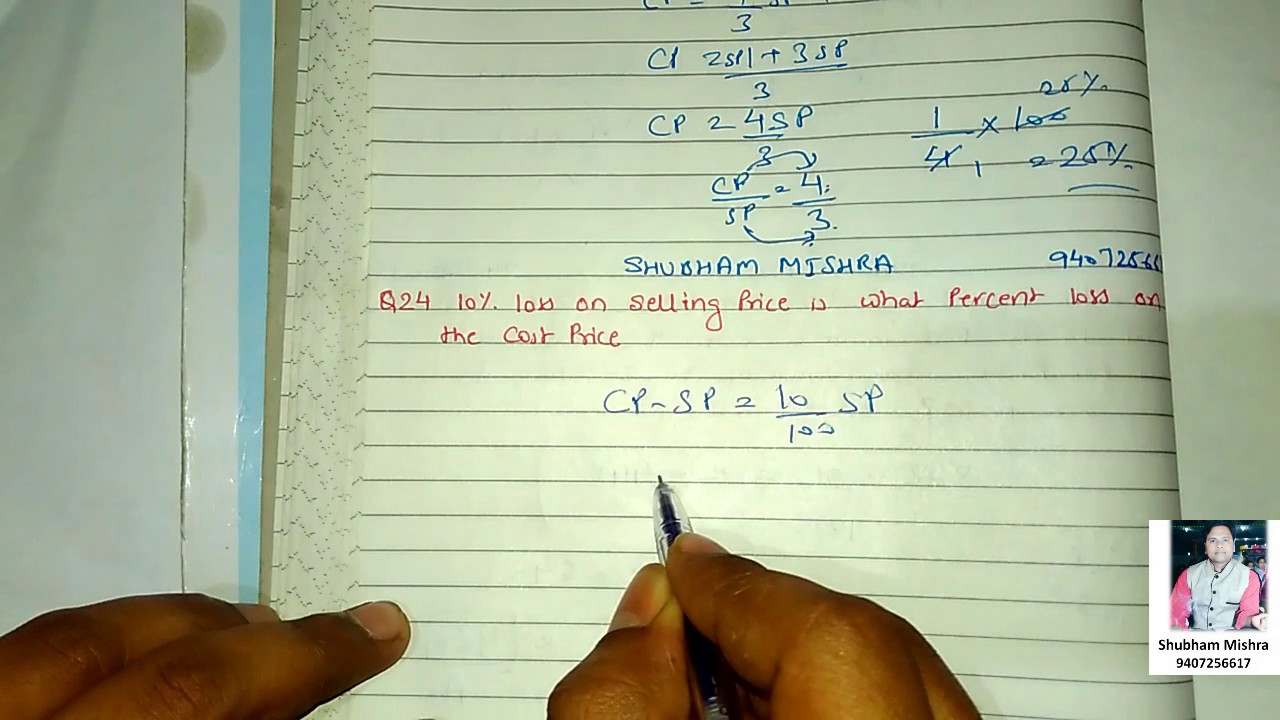 3
CP = 2SP + 3SP
3
CP = 4SP
3
CP = 4
SP 3
25%
1 × 100
4 1 = 25%
SHUBHAM MISHRA 94072566
Q24 10% loss on selling Price is what Percent loss on
the Cost Price
CP - SP = 10 SP
100
Shubham Mishra
9407256617